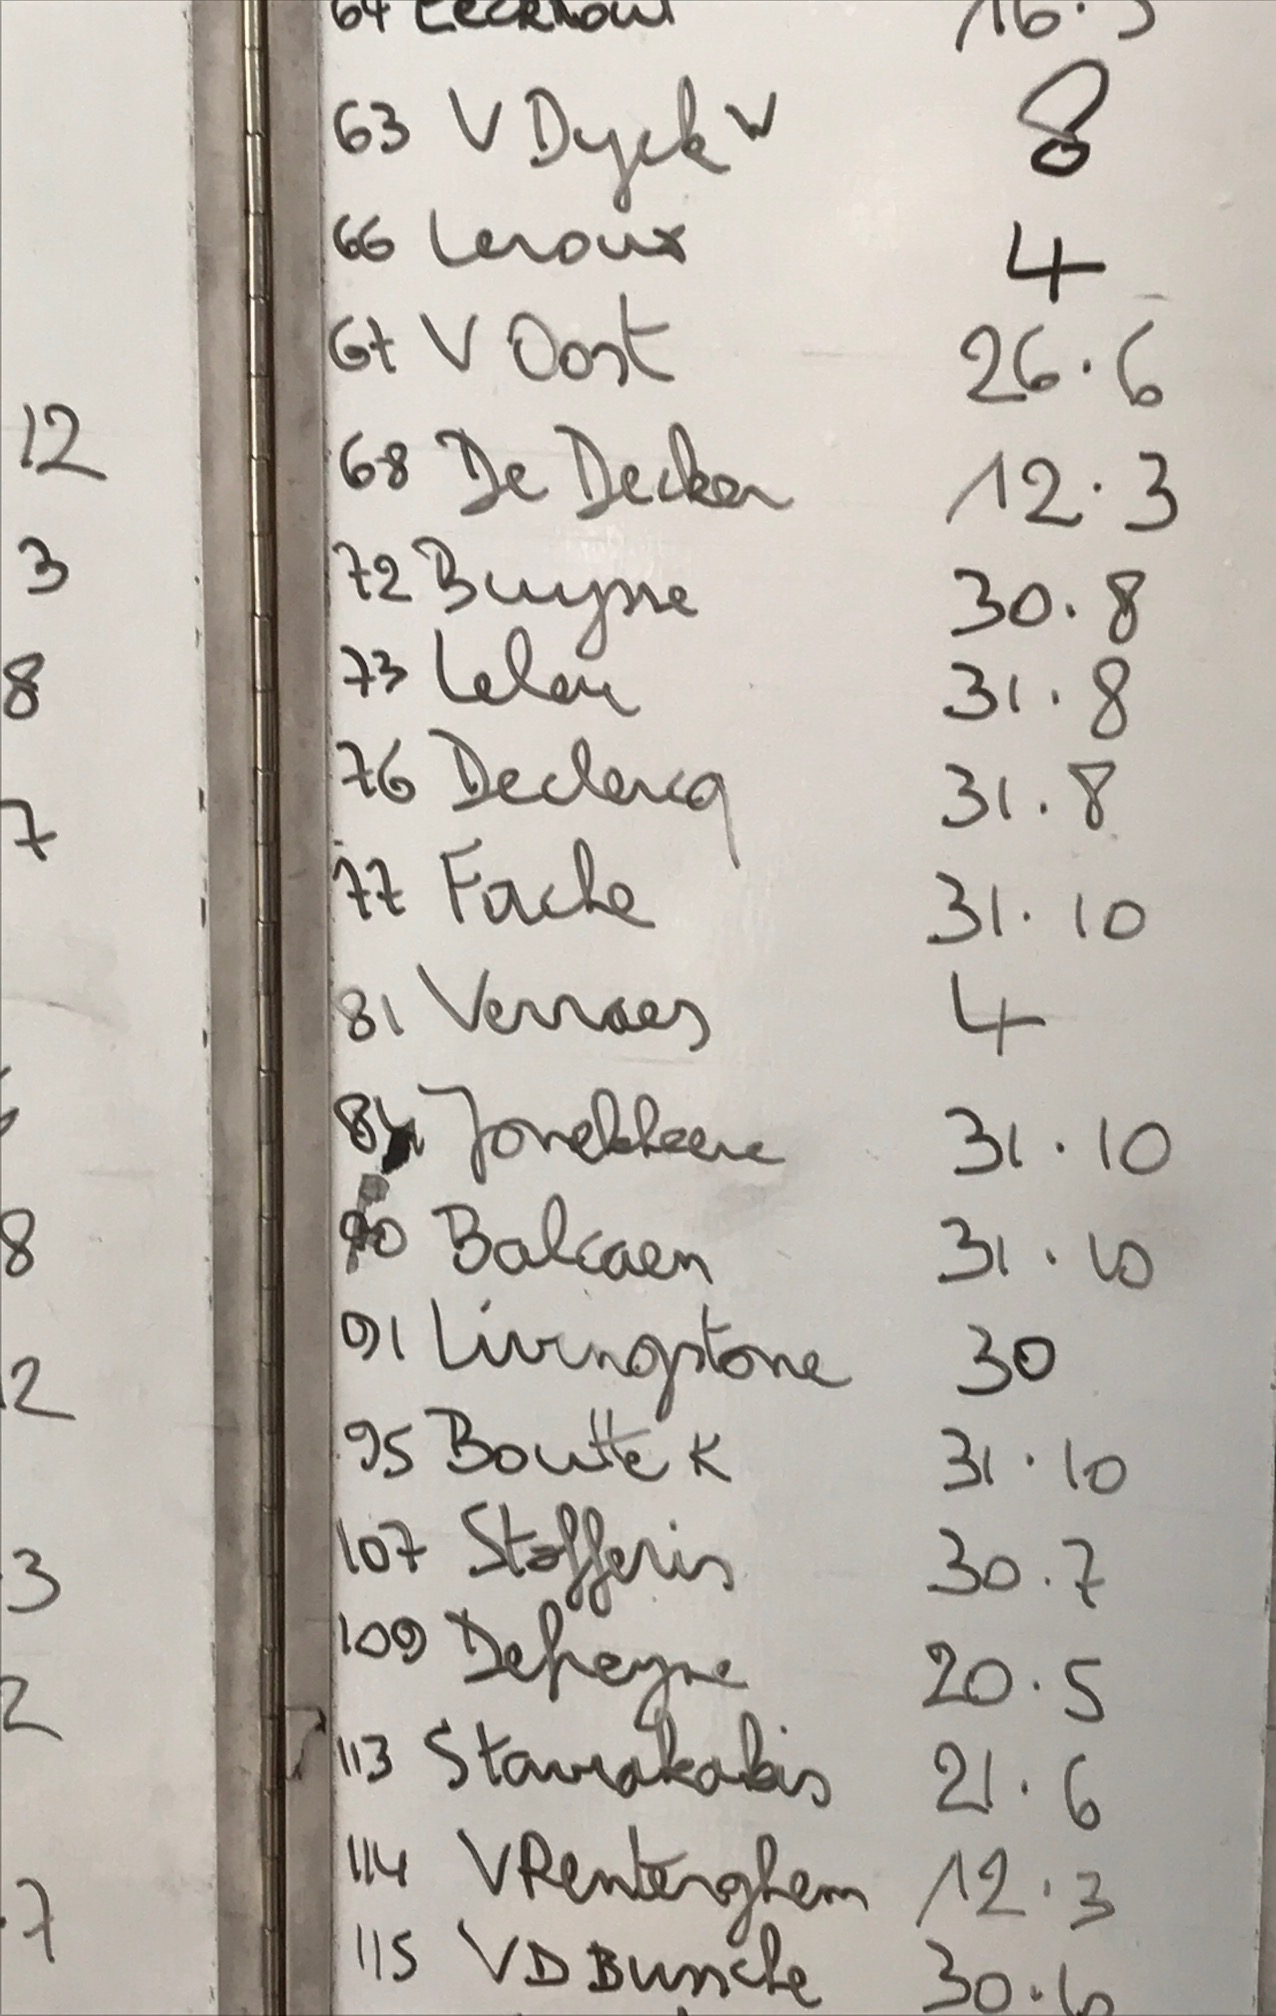 12
3
8
7
8
2
3
2
7
64 Eeckhout 16.5
63 V Dyck W 8
66 Leroux 4
67 V Oost 26.6
68 De Decker 12.3
72 Buysse 30.8
73 31.8
76 Declercq 31.8
77 Fache 31.10
81 Verraes 4
84 Jonckheere 31.10
90 Balcaen 31.10
91 Livingstone 30
95 Boutte K 31.10
107 Stofferis 30.7
109 Deheyne 20.5
113 Stavrakakis 21.6
114 V Renterghem 12.3
115 VD Bussche 30.6